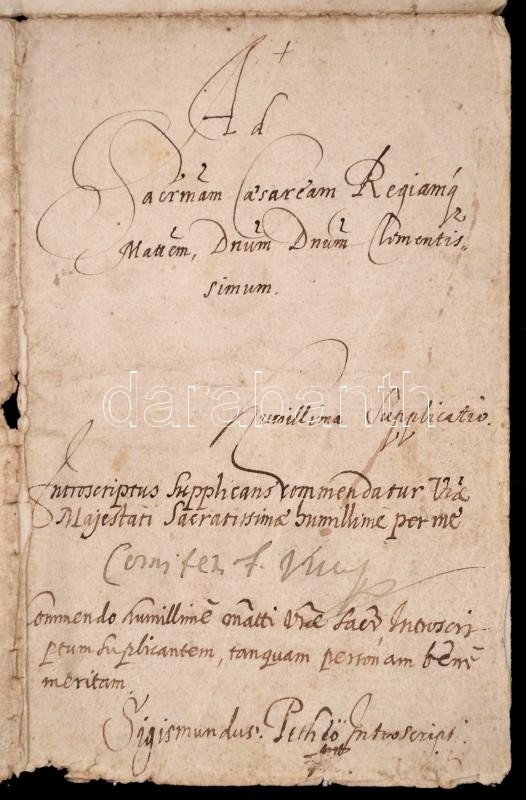 Ad
Sacr̃mam Cæsaream Regiamq̃
Mattēm, Dnūm Dnūm Clementis„
simum.
darabanth
Humillima Supplicatio.
Introscriptus supplicans commendatur Vræ
Majestati Sacratissimæ humillimè per me
Commendo humillimè Mãtti Vræ Sacræ Introscri„
ptum suplicantem, tanquam personam benè
meritam.
Sigismundus: Pethëö Introscript: